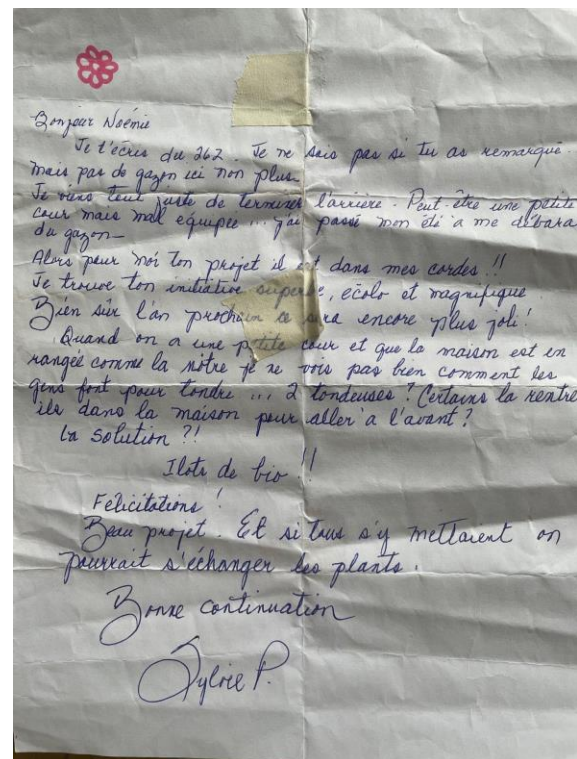 Bonjour Noémie
Je t'écris du 262. Je ne sais pas si tu as remarqué
mais pas de gazon ici non plus.
Je viens tout juste de terminer l'arrière. Peut-être une petite
cour mais mal équipée... j'ai passé mon été a me débara
du gazon—
Alors pour moi ton projet il est dans mes cordes !!
Je trouve ton initiative superbe, écolo et magnifique
Bien sûr l'an prochain ce sera encore plus joli !
Quand on a une petite cour et que la maison est en
rangée comme la nôtre je ne vois pas bien comment les
gens font pour tondre ... 2 tondeuses ? Certains la rentre
ils dans la maison pour aller à l'avant ?
La solution ?!
Ilots de bio !!
Félicitations !
Beau projet. Et si tous s'y mettaient on
pourrait s'échanger les plants.
Bonne continuation
Sylvie P.